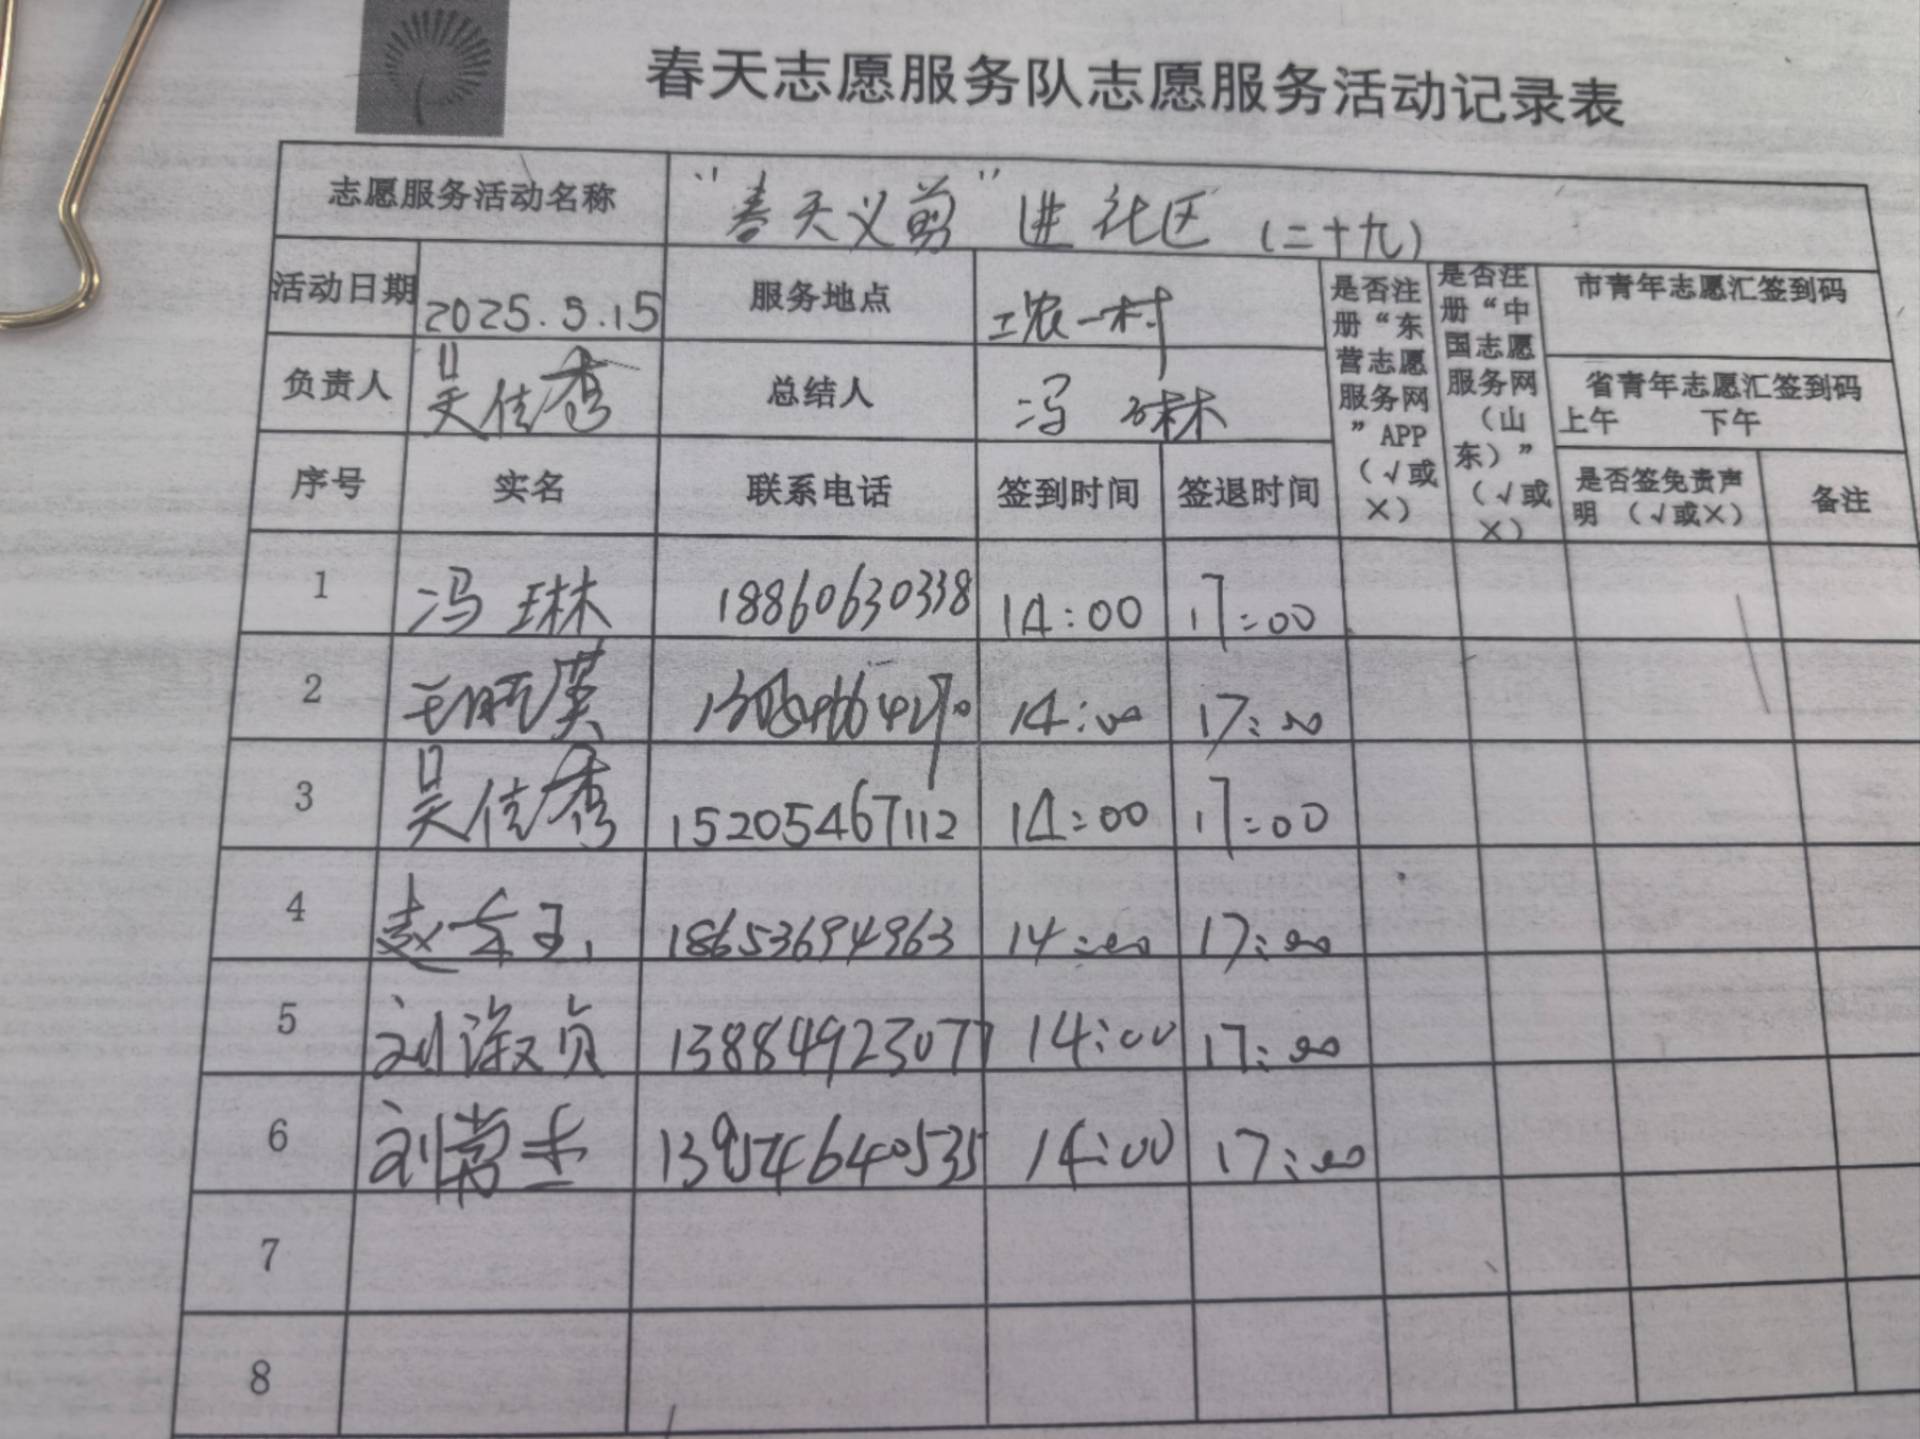 春天志愿服务队志愿服务活动记录表
志愿服务活动名称 “春天义剪”进社区（二十九）
活动日期 2025.5.15 服务地点 工农一村 是否注册“东营志愿服务网”APP（√或×） 是否注册“中国志愿服务网（山东）”（√或×） 市青年志愿汇签到码
负责人 吴佳秀 总结人 冯琳 省青年志愿汇签到码
上午 下午
序号 实名 联系电话 签到时间 签退时间 是否签免责声明（√或×） 备注
1 冯琳 18860630338 14:00 17:00
2 14:00 17:00
3 吴佳秀 15205467112 14:00 17:00
4 赵 18653694963 14:00 17:00
5 刘淑贞 13884923077 14:00 17:00
6 刘 14:00 17:00
7
8